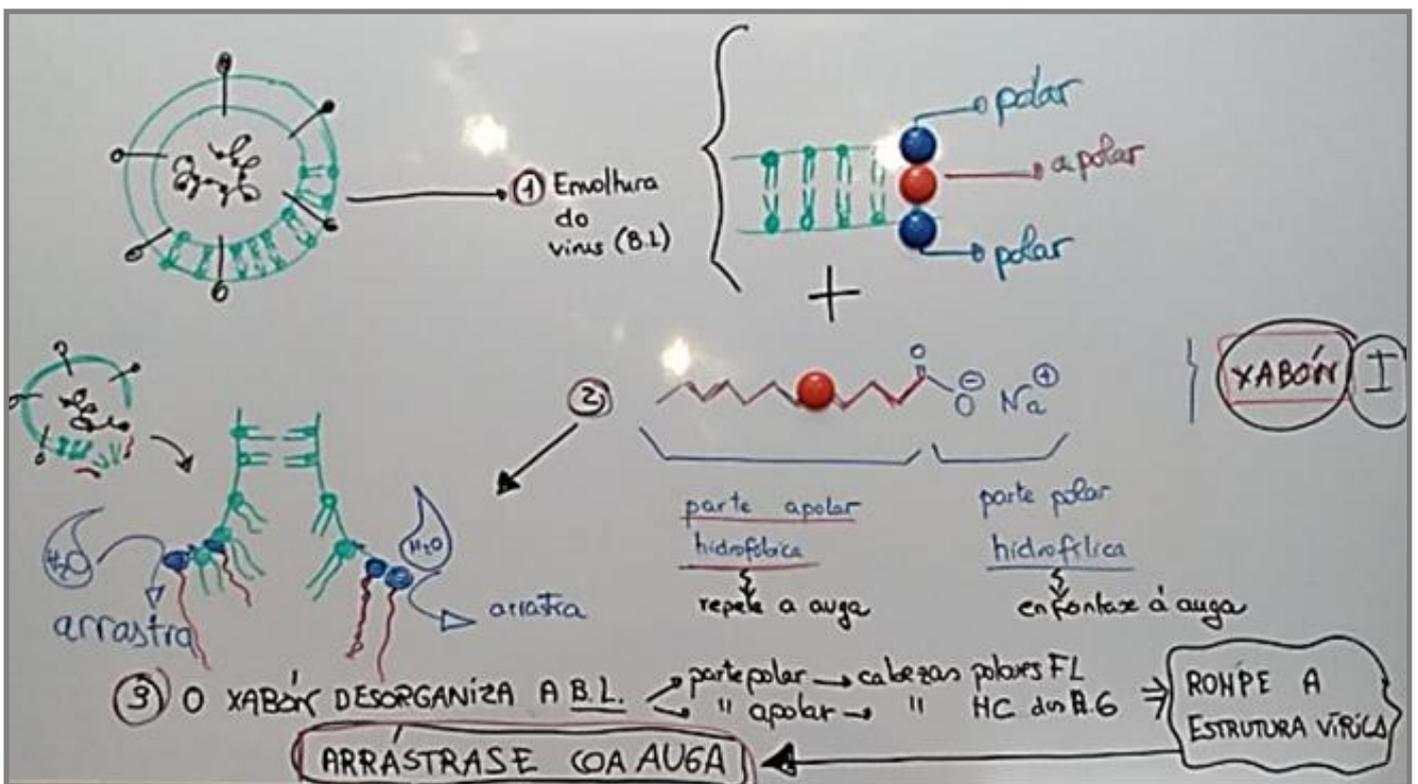 polar
apolar
polar
① Envoltura
do
virus (B.L)
+
②
O
O ⊖ Na ⊕
XABÓN I
parte apolar
hidrofóbica
repele a auga
parte polar
hidrofílica
enfróntase á auga
H₂O
arrastra
H₂O
arrastra
③ O XABÓN DESORGANIZA A B.L. parte polar → cabezas polares FL
" apolar → " HC dos A.G
⇒ ROMPE A
ESTRUTURA VÍRICA
ARRÁSTRASE COA AUGA